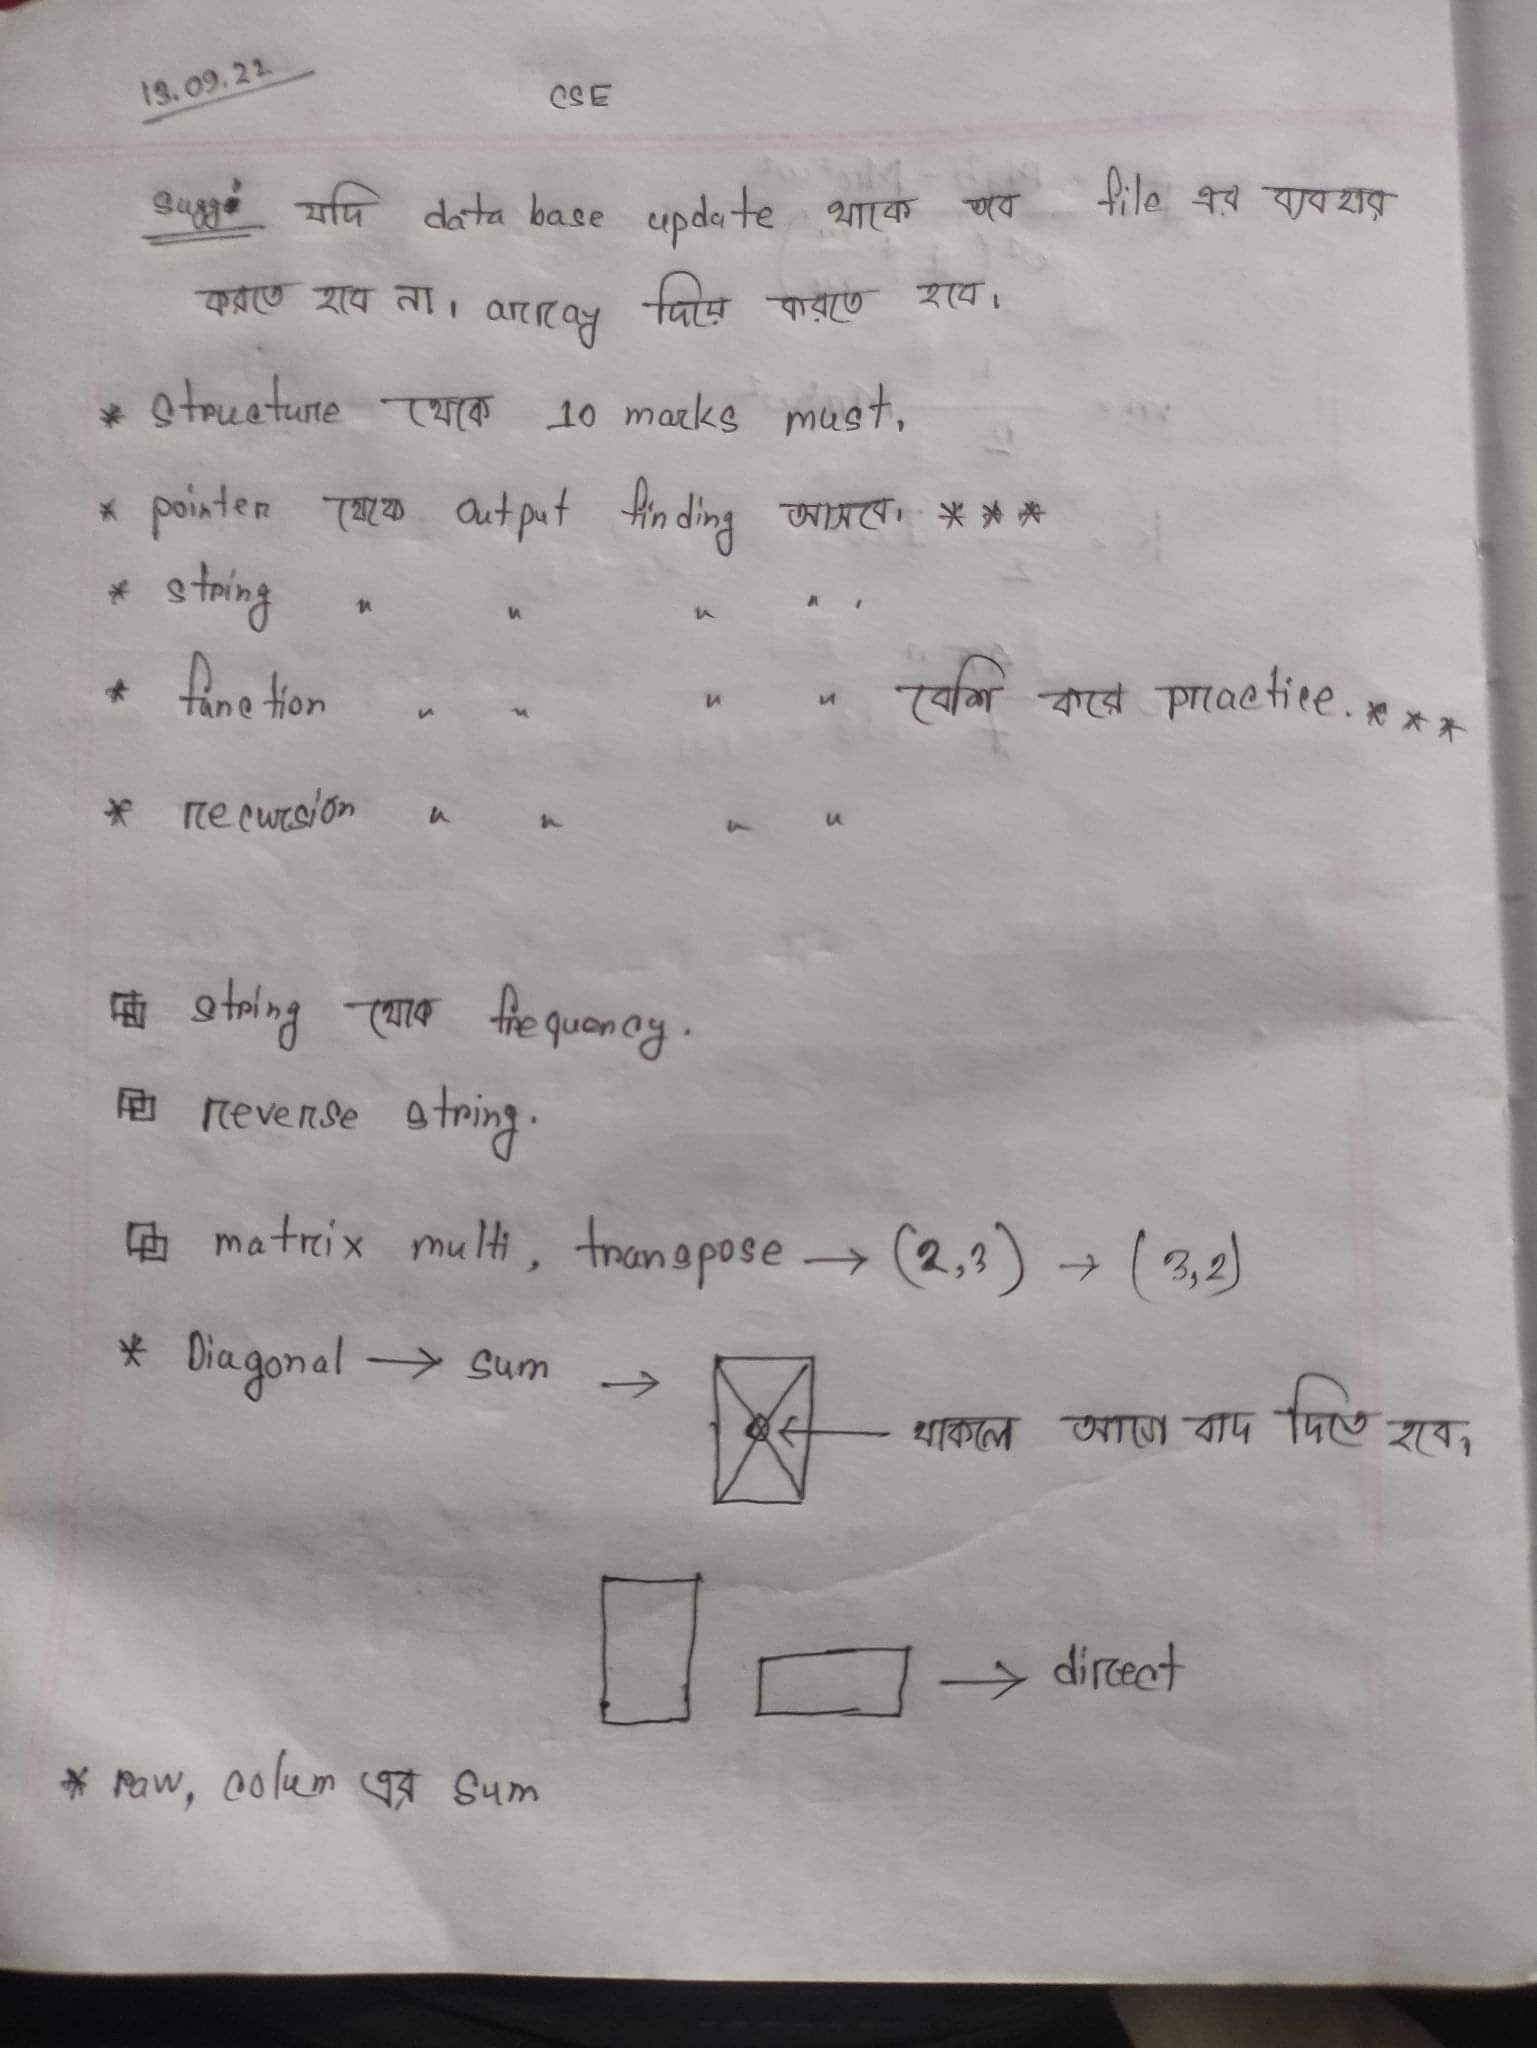 13.09.22
CSE
Sugg: যদি data base update থাকে তবে file এর ব্যবহার
করতে হবে না। array দিয়ে করতে হবে।
* Structure থেকে 10 marks must.
* pointer থেকে output finding আসবে। * * *
* string " " " " .
* function " " " " বেশি করে practice. * * *
* recursion " " " "
string থেকে frequency.
reverse string.
matrix multi, transpose → (2,3) → (3,2)
* Diagonal → sum → ← থাকলে আগে বাদ দিতে হবে,
→ direct
* raw, colum এর sum